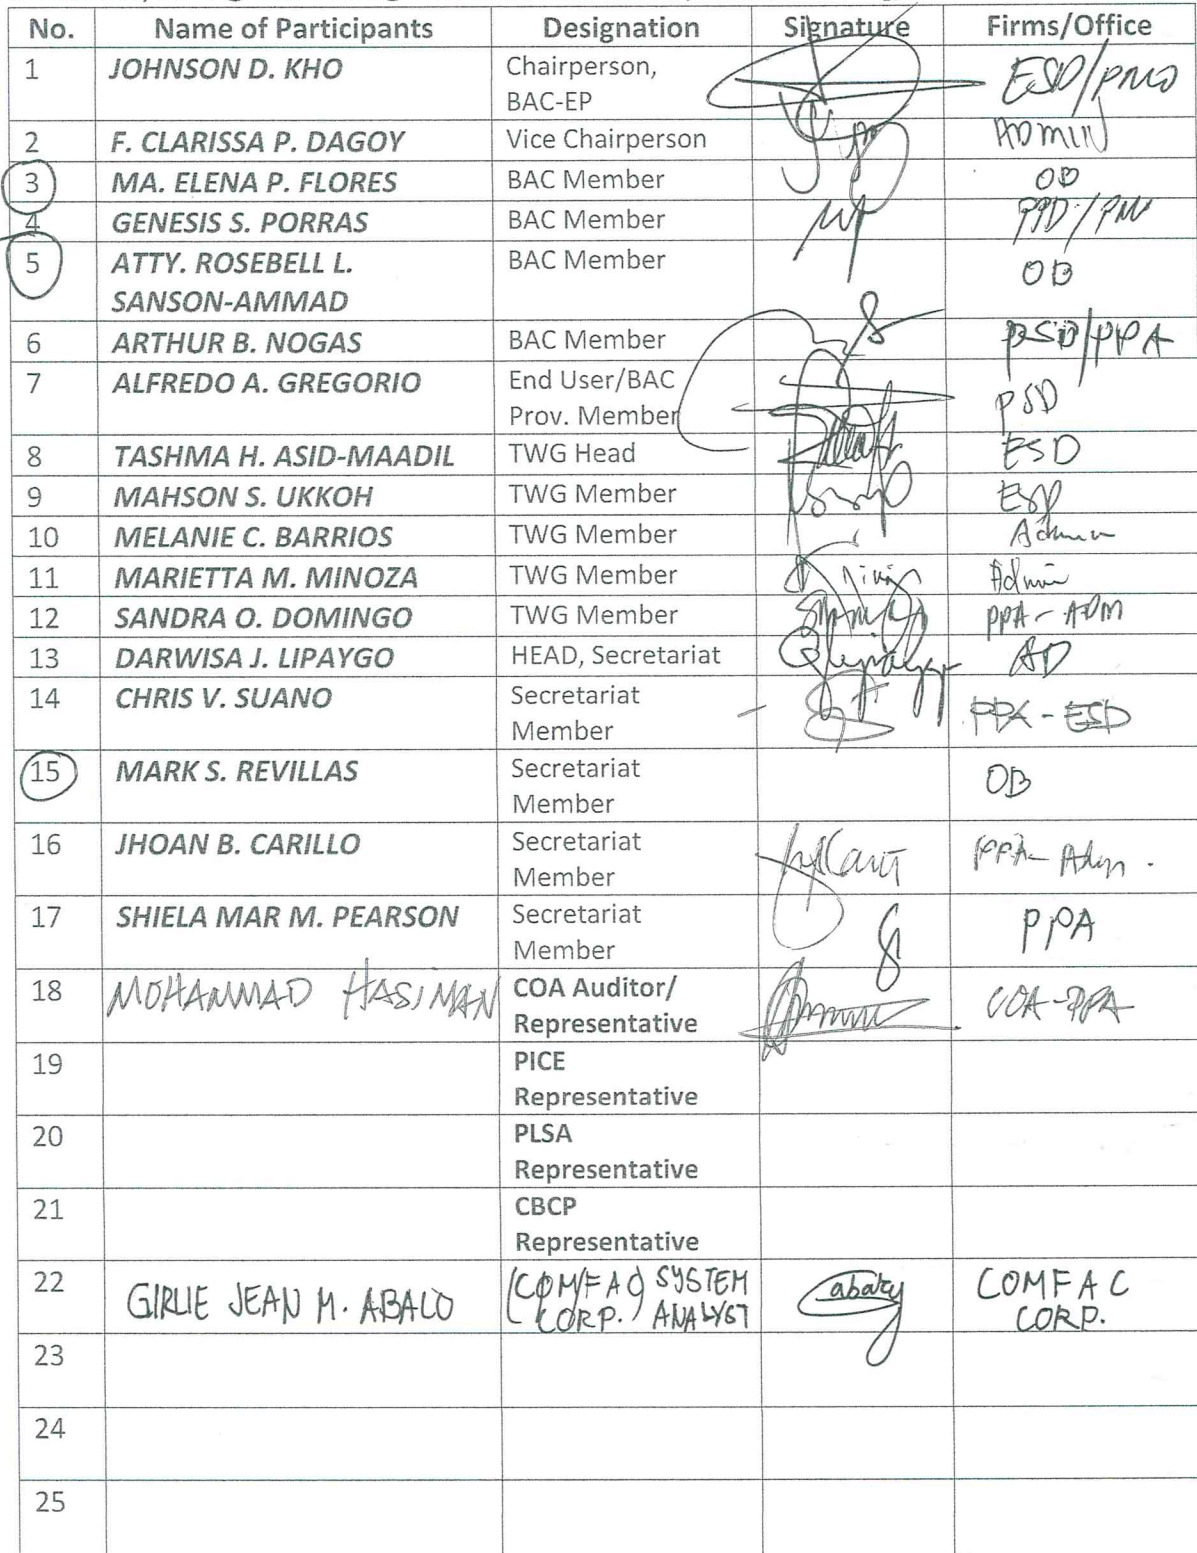 No. Name of Participants Designation Signature Firms/Office
1 JOHNSON D. KHO Chairperson, ESD/PMO
BAC-EP
2 F. CLARISSA P. DAGOY Vice Chairperson ADMIN
3 MA. ELENA P. FLORES BAC Member OB
4 GENESIS S. PORRAS BAC Member
5 ATTY. ROSEBELL L. BAC Member OB
SANSON-AMMAD
6 ARTHUR B. NOGAS BAC Member PSD/PPA
7 ALFREDO A. GREGORIO End User/BAC PSD
Prov. Member
8 TASHMA H. ASID-MAADIL TWG Head ESD
9 MAHSON S. UKKOH TWG Member ESD
10 MELANIE C. BARRIOS TWG Member Admin
11 MARIETTA M. MINOZA TWG Member Admin
12 SANDRA O. DOMINGO TWG Member PPA - ADM
13 DARWISA J. LIPAYGO HEAD, Secretariat AD
14 CHRIS V. SUANO Secretariat PPA - ESD
Member
15 MARK S. REVILLAS Secretariat OB
Member
16 JHOAN B. CARILLO Secretariat PPA - Adm.
Member
17 SHIELA MAR M. PEARSON Secretariat PPA
Member
18 MOHAMMAD HASIMAN COA Auditor/ COA-PPA
Representative
19 PICE
Representative
20 PLSA
Representative
21 CBCP
Representative
22 GIRLIE JEAN M. ABALO (COMFAC SYSTEM COMFAC
CORP.) ANALYST CORP.
23
24
25